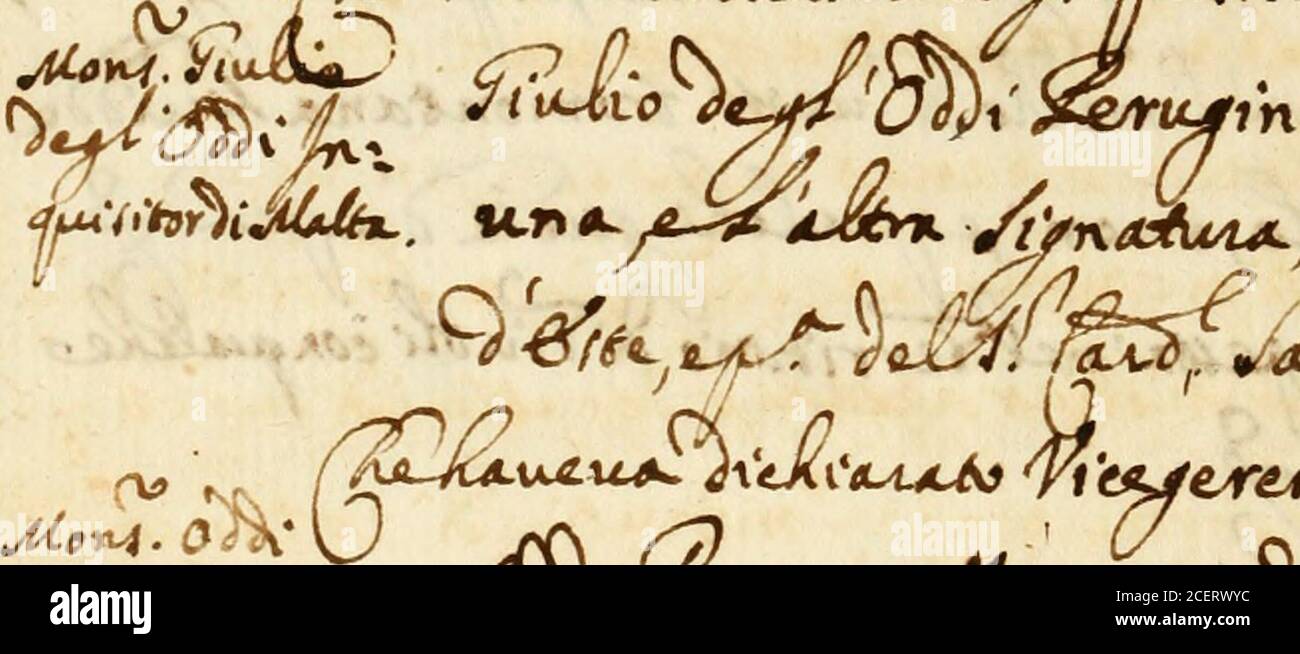 Mons.r Giulio
degl' Oddi In=
quisitor di Malta.
Giulio degl' Oddi Perugin
una, e l'altra Signatura,
d'Este, e p.a del S.r Card.l Sa
Che haveva dichiarato Vicegeren
Mons.r Oddi
alamy
Image ID: 2CERWYC
www.alamy.com